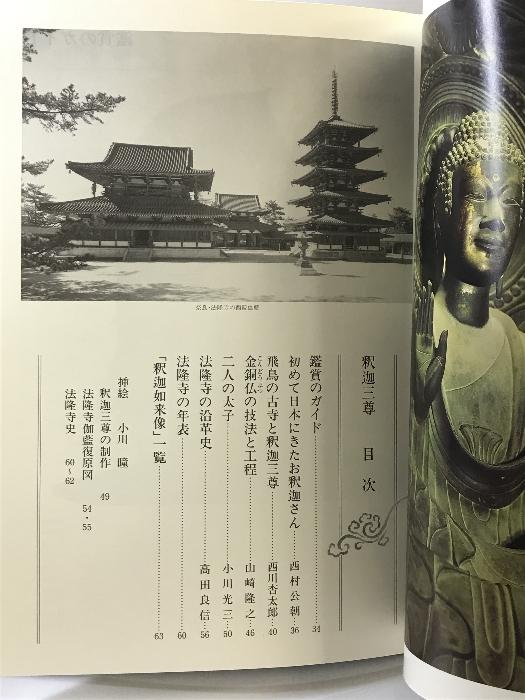 奈良・法隆寺の西院伽藍
釈迦三尊 目次
鑑賞のガイド 34
初めて日本にきたお釈迦さん 西村公朝 36
飛鳥の古寺と釈迦三尊 西川杏太郎 40
金銅仏の技法と工程 山崎隆之 46
こんどうぶつ
二人の太子 小川光三 50
法隆寺の沿革史 高田良信 56
法隆寺の年表 60
「釈迦如来像」一覧 63
挿絵 小川 瞳
釈迦三尊の制作 49
法隆寺伽藍復原図 54・55
法隆寺史 60〜62